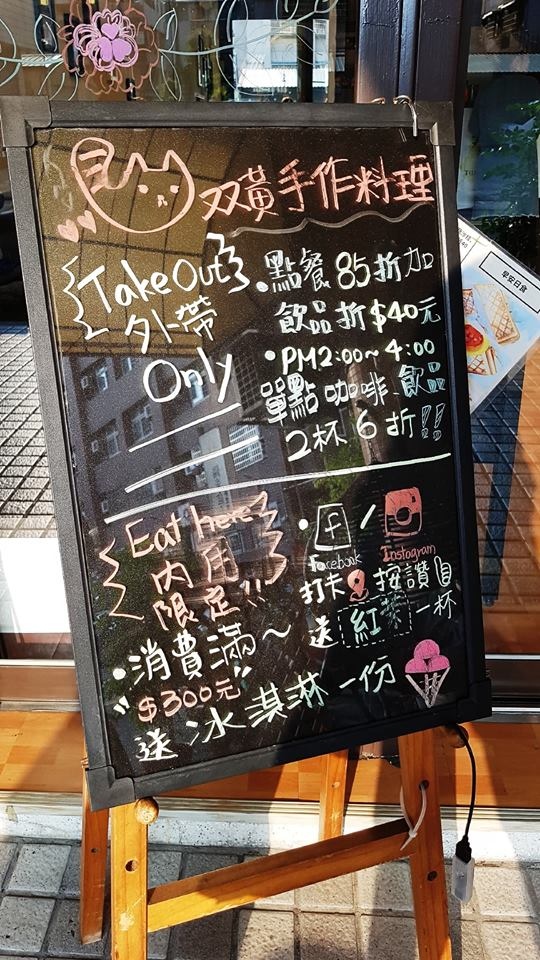 双黃手作料理
Take Out
外帶
Only
•點餐85折加
飲品折$40元
•PM2:00~4:00
單點咖啡.飲品
2杯6折!!
Eat here
內用
限定!!
•消費滿~
"$300元"
送冰淇淋一份
•f/
Facebook Instagram
打卡 按讚
送紅茶一杯
早安日食